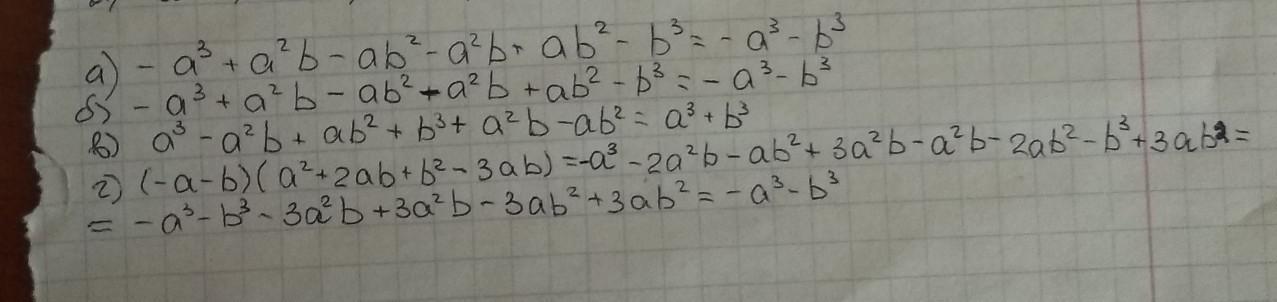 а) - a³ + a²b - ab² - a²b + ab² - b³ = - a³ - b³
б) - a³ + a²b - ab² - a²b + ab² - b³ = - a³ - b³
в) a³ - a²b + ab² + b³ + a²b - ab² = a³ + b³
г) (-a-b)(a²+2ab+b²-3ab) = -a³ - 2a²b - ab² + 3a²b - a²b - 2ab² - b³ + 3ab² =
= - a³ - b³ - 3a²b + 3a²b - 3ab² + 3ab² = - a³ - b³